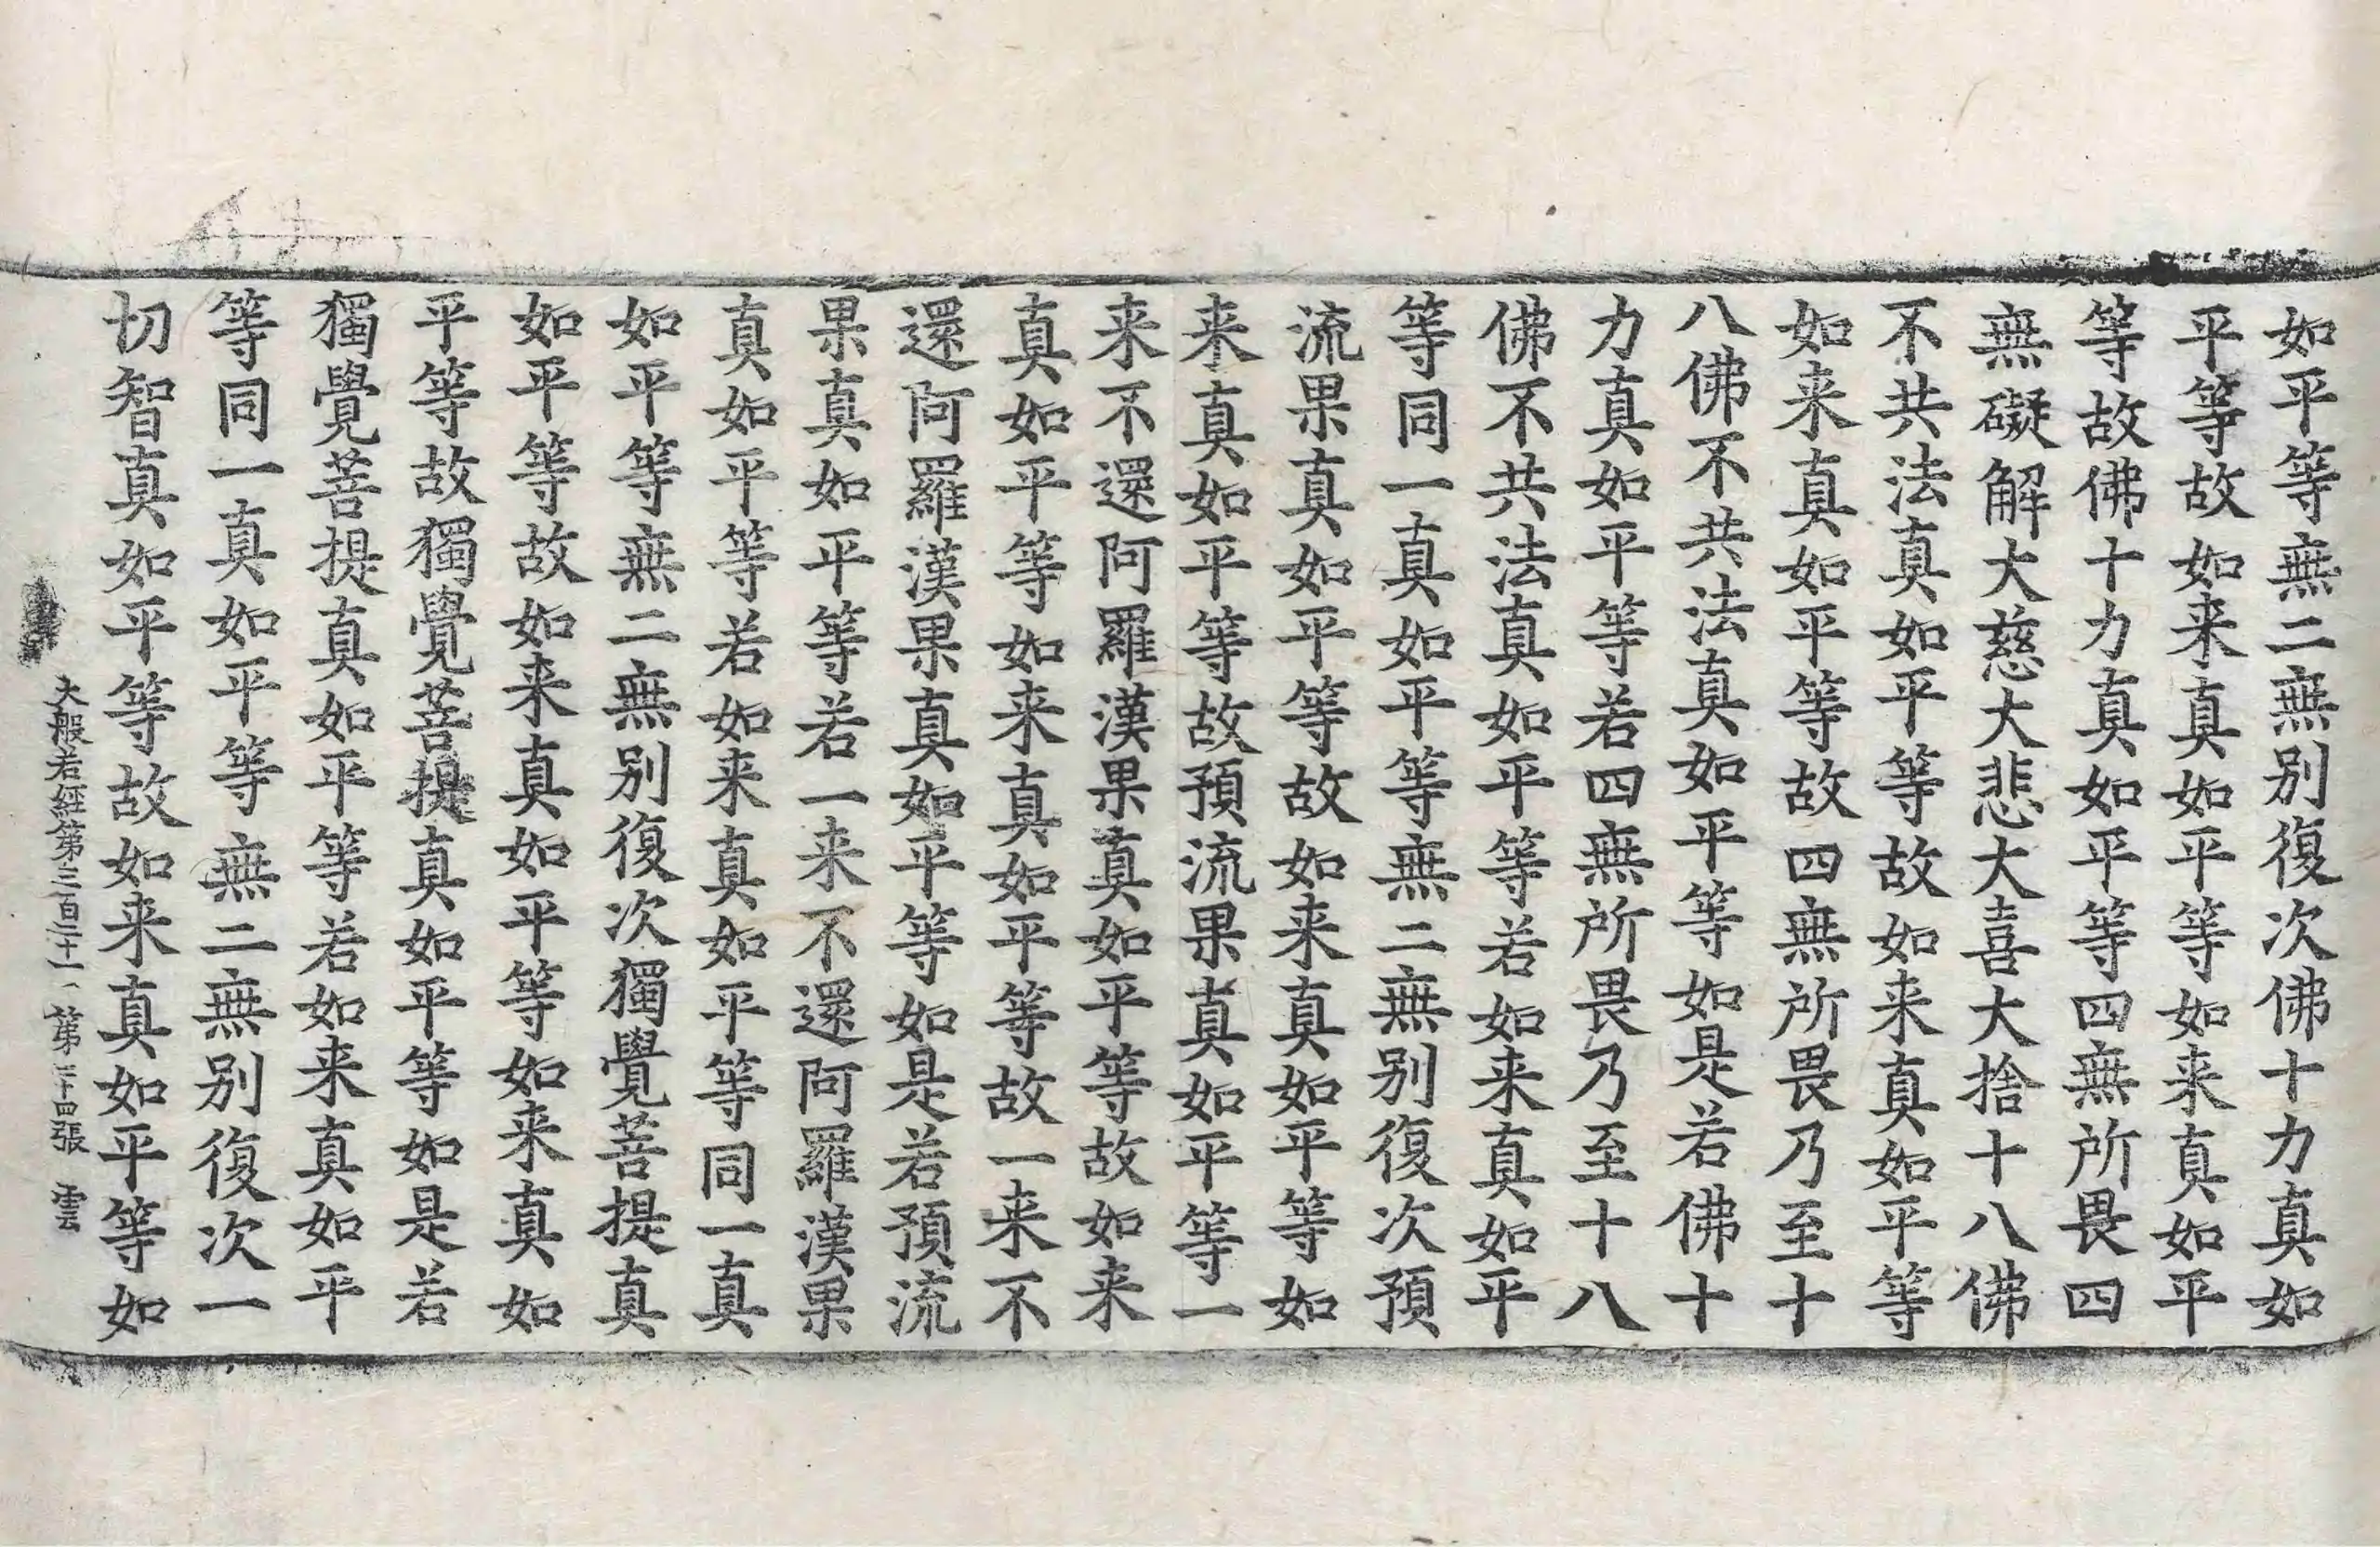 如平等無二無别復次佛十力真如
平等故如来真如平等如来真如平
等故佛十力真如平等四無所畏四
無礙解大慈大悲大喜大捨十八佛
不共法真如平等故如来真如平等
如来真如平等故四無所畏乃至十
八佛不共法真如平等如是若佛十
力真如平等若四無所畏乃至十八
佛不共法真如平等若如来真如平
等同一真如平等無二無别復次預
流果真如平等故如来真如平等如
来真如平等故預流果真如平等一
来不還阿羅漢果真如平等故如来
真如平等如来真如平等故一来不
還阿羅漢果真如平等如是若預流
果真如平等若一来不還阿羅漢果
真如平等若如来真如平等同一真
如平等無二無别復次獨覺菩提真
如平等故如来真如平等如来真如
平等故獨覺菩提真如平等如是若
獨覺菩提真如平等若如来真如平
等同一真如平等無二無别復次一
切智真如平等故如来真如平等如
大般若經第三百二十一 第二十四張 雲